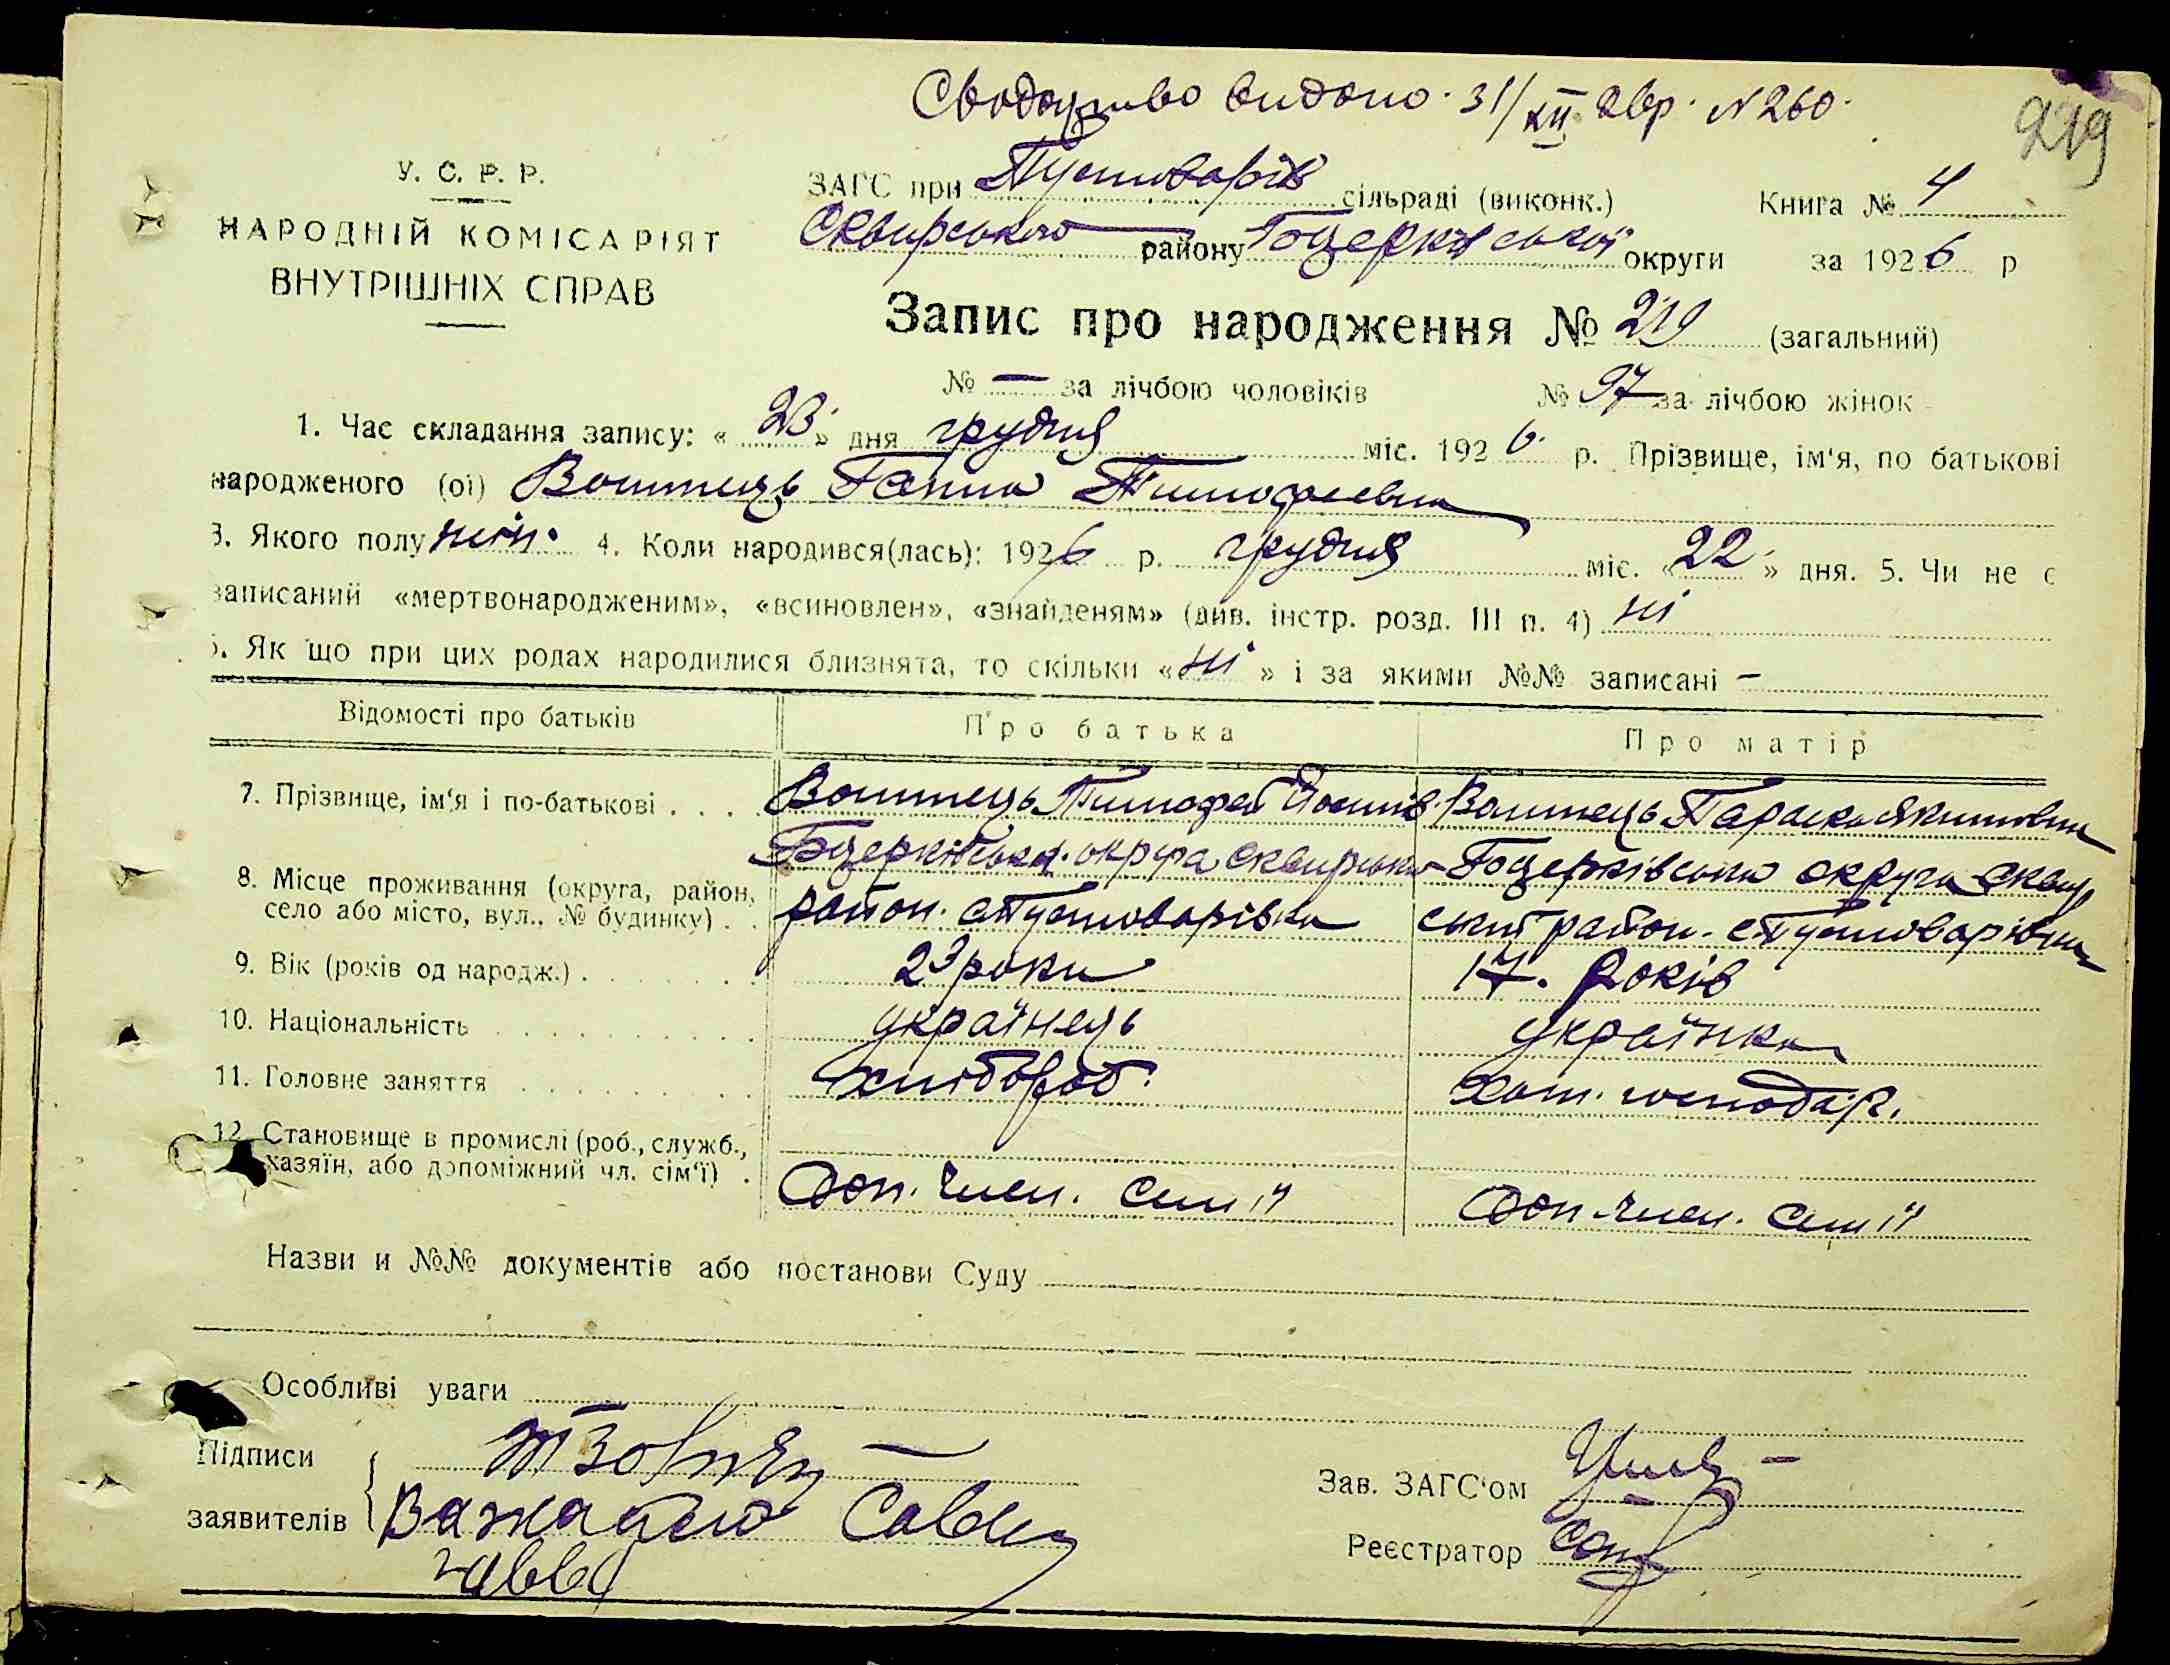 Свідоцтво видано. 31/XII 26р. №260.
219
У. С. Р. Р.
НАРОДНІЙ КОМІСАРІЯТ
ВНУТРІШНІХ СПРАВ
ЗАГС при Пустоварів сільраді (виконк.) Книга № 4
Сквирського району Білоцерківської округи за 1926 р
Запис про народження № 219 (загальний)
№ — за лічбою чоловіків № 97 за лічбою жінок
1. Час складання запису: « 23 » дня грудня міс. 1926 р. Прізвище, ім'я, по батькові
народженого (ої) Ганна Тимофеевна
3. Якого полу жін. 4. Коли народився(лась): 1926 р. грудня міс. « 22 » дня. 5. Чи не є
записаний «мертвонародженим», «всиновлен», «знайденям» (див. інстр. розд. III п. 4) ні
6. Як що при цих родах народилися близнята, то скільки « ні » і за якими №№ записані —
Відомості про батьків Про батька Про матір
7. Прізвище, ім'я і по-батькові . . . . Тимофей Йосипів. Параска Якимовна
8. Місце проживання (округа, район, село або місто, вул., № будинку) . .
округа Сквирськи район. с Пустоварівка
округа Сквирський район. с Пустоварівка
9. Вік (років од народж.) . . . . . . . 23 роки 17. Років
10. Національність . . . . . . . . українець українка
11. Головне заняття . . . . . . . хлібороб. хат. господар.
12. Становище в промислі (роб., служб., хазяїн, або допоміжний чл. сім'ї) . Доп. член. семіи Доп. член. семіи
Назви и №№ документів або постанови Суду
Особливі уваги
Підписи
заявителів
Зав. ЗАГС'ом
Реєстратор